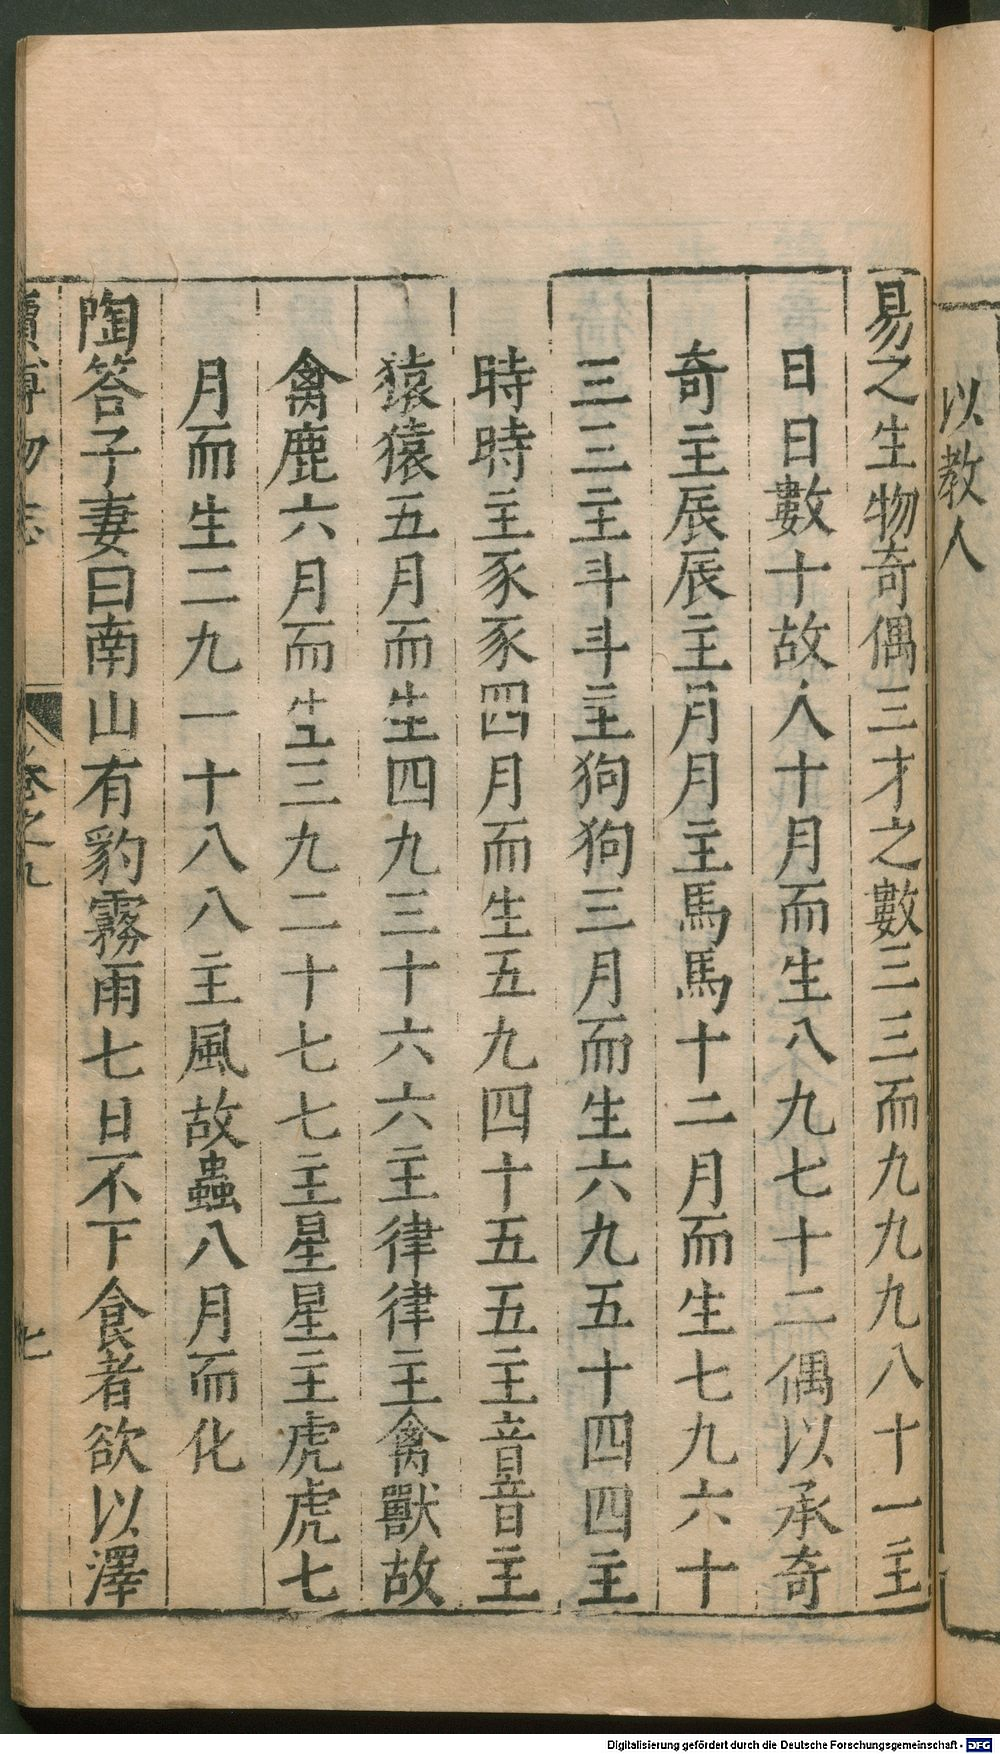 以教人
易之生物奇偶三才之數三三而九九九八十一主
日日數十故人十月而生八九七十二偶以承奇
奇主辰辰主月月主馬馬十二月而生七九六十
三三主斗斗主狗狗三月而生六九五十四四主
時時主豕豕四月而生五九四十五五主音音主
猿猿五月而生四九三十六六主律律主禽獸故
禽鹿六月而生三九二十七七主星星主虎虎七
月而生二九一十八八主風故蟲八月而化
陶答子妻曰南山有豹霧雨七日不下食者欲以澤
物志 卷之九 七
Digitalisierung gefördert durch die Deutsche Forschungsgemeinschaft - DFG